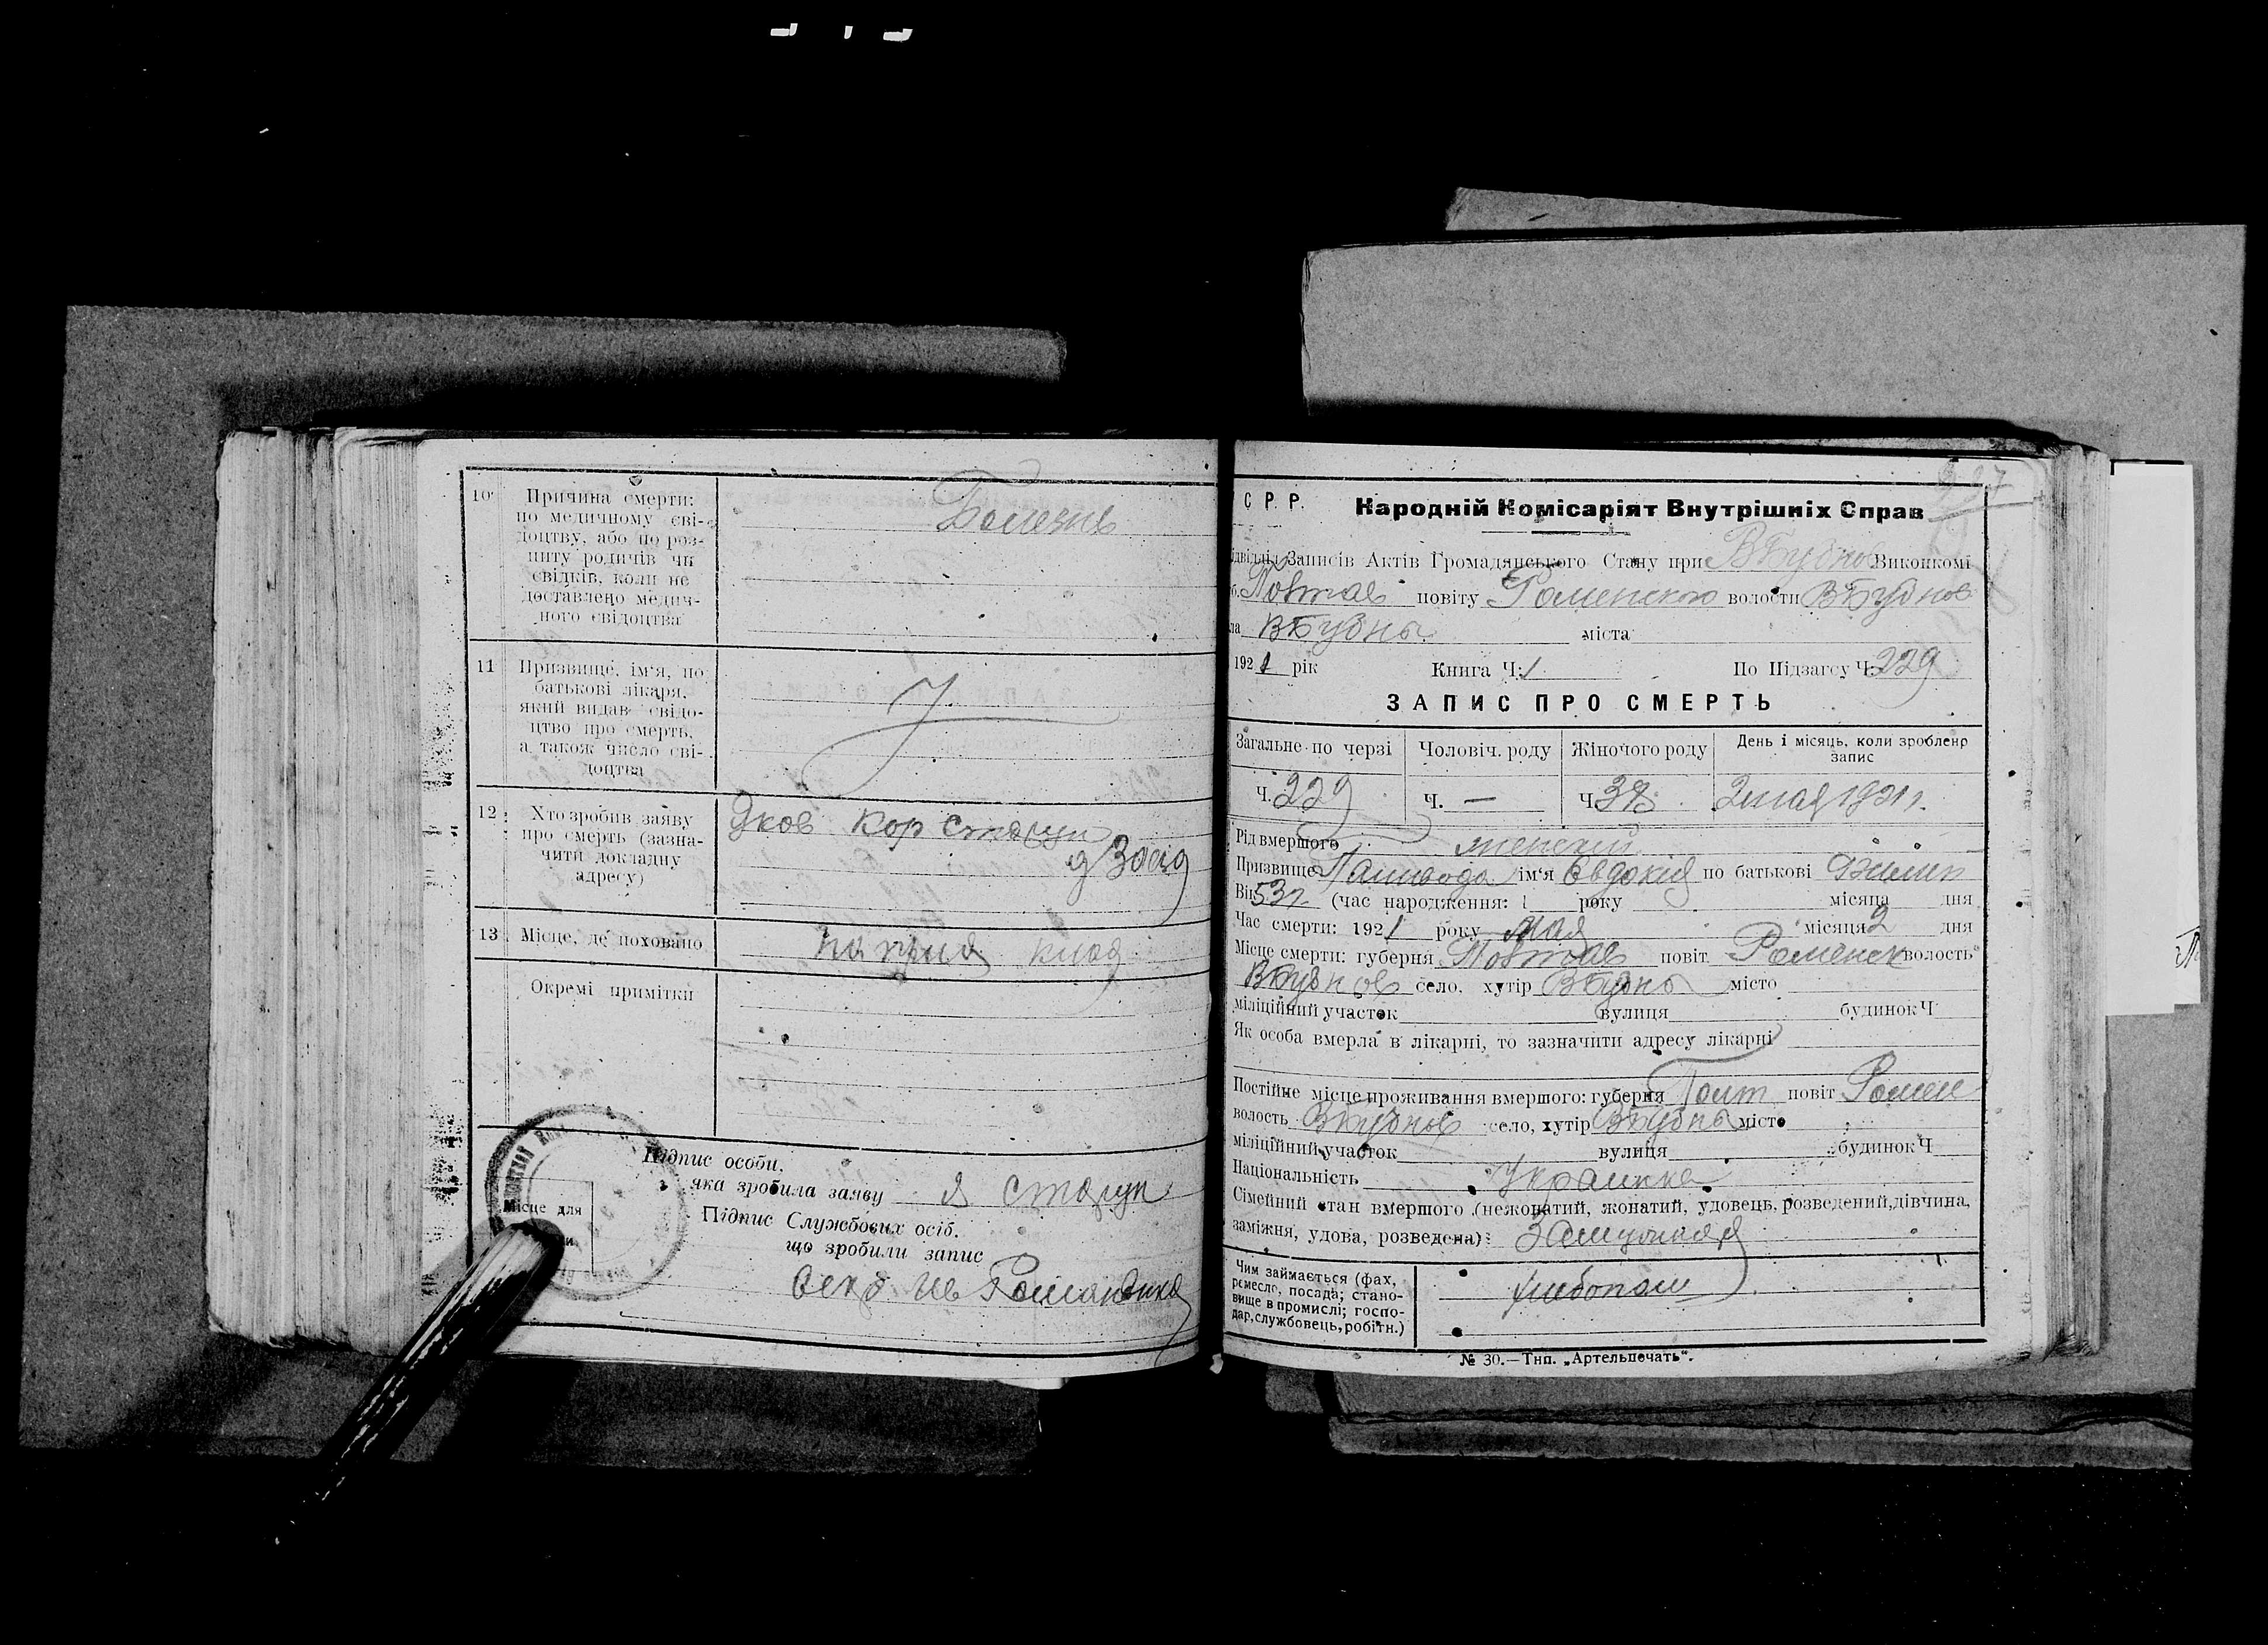 10 Причина смерти:
по медичному сві-
доцтву, або по роз-
питу родичів чи
свідків, коли не
доставлено медич-
ного свідоцтва
Болезнь
11 Призвище, ім'я, по
батькові лікаря,
який видав свідо-
цтво про смерть,
а також число сві-
доцтва
12 Хто зробив заяву
про смерть (зазна-
чити докладну
адресу)
Яков Кор
13 Місце, де поховано
клад
Окремі примітки
Підпис особи,
яка зробила заяву я
Місце для
Підпис Службових осіб.
що зробили запис
Романенко
С Р. Р. Народній Комісаріят Внутрішніх Справ
Записів Актів Громадянського Стану при ВБубнов Виконкомі
Полтав повіту Роменского волости ВБубнов
ла ВБубны міста
1921 рік Книга Ч. 1 По Підзагсу Ч. 229
ЗАПИС ПРО СМЕРТЬ
Загальне по черзі Чоловіч. роду Жіночого роду День і місяць, коли зроблено
запис
Ч. 229 Ч. — Ч. 2 мая 1921 г.
Рід вмершого женский
Призвище ім'я Евдокия по батькові
Вік 53 г. (час народження: 1 року місяца дня
Час смерти: 1921 року мая місяця 2 дня
Місце смерти: губерня Полтав повіт Роменск волость
ВБубнов село, хутір ВБубны місто
міліційний участок вулиця будинок Ч
Як особа вмерла в лікарні, то зазначити адресу лікарні
Постійне місце проживання вмершого: губерня Полт повіт Ромен
волость ВБубнов село, хутір ВБубны місто
міліційний участок вулиця будинок Ч
Національність Украинка
Сімейний стан вмершого (нежонатий, жонатий, удовець, розведений, дівчина,
заміжня, удова, розведена): Замужняя
Чим займається (фах,
ремесло, посада; стано-
вище в промислі; госпо-
дар, службовець, робітн.)
хлебопаш
№ 30.—Тип. „Артельпечать".